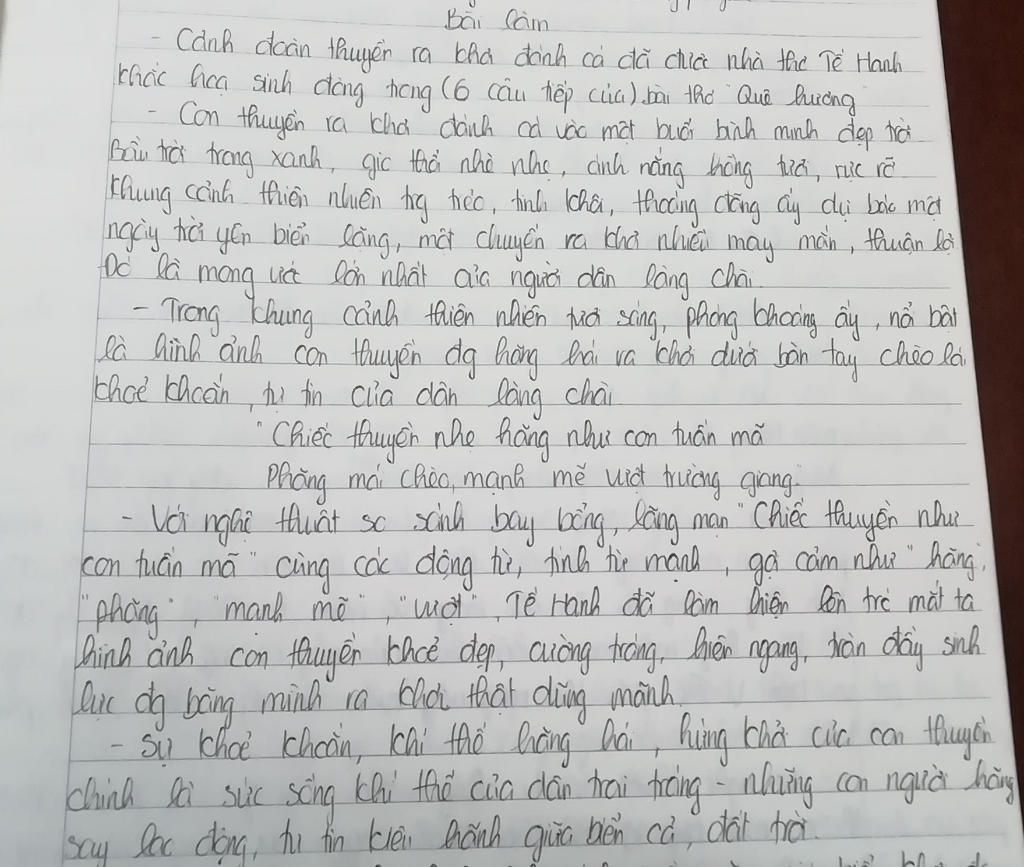 Bài làm
- Cảnh đoàn thuyền ra khơi đánh cá đã được nhà thơ Tế Hanh
khắc họa sinh động trong (6 câu tiếp của) bài thơ "Quê hương"
- Con thuyền ra khơi đánh cá vào một buổi bình minh đẹp trời
Bầu trời trong xanh, gió thổi nhè nhẹ, ánh nắng hồng tươi, rực rỡ
khung cảnh thiên nhiên trg trẻo, tinh khôi, thoáng đãng ấy dự báo một
ngày trời yên biển lặng, một chuyến ra khơi nhiều may mắn, thuận lợi
Đó là mong ước lớn nhất của người dân làng chài.
- Trong khung cảnh thiên nhiên tươi sáng, phóng khoáng ấy, nổi bật
là hình ảnh con thuyền đg hăng hái ra khơi dưới bàn tay chèo lái
khoẻ khoắn, tự tin của dân làng chài
"Chiếc thuyền nhẹ hăng như con tuấn mã
Phăng mái chèo, mạnh mẽ vượt trường giang."
- Với nghệ thuật so sánh bay bổng, lãng mạn "Chiếc thuyền như
con tuấn mã" cùng các động từ, tính từ mạnh, gợi cảm như "hăng",
"phăng", "mạnh mẽ", "vượt", Tế Hanh đã làm hiện lên trc mắt ta
hình ảnh con thuyền khoẻ đẹp, cường tráng, hiên ngang, tràn đầy sinh
lực đg băng mình ra khơi thật dũng mãnh.
- Sự khoẻ khoắn, khí thế hăng hái, hứng khởi của con thuyền
chính là sức sống khí thế của dân trai tráng - những con người hăng
say lao động, tự tin kiêu hãnh giữa biển cả, đất trời.